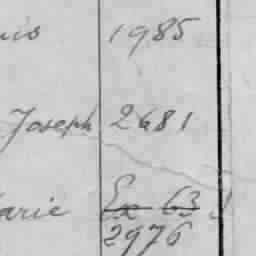 1985
Joseph 2681
arie Ex 63
2976